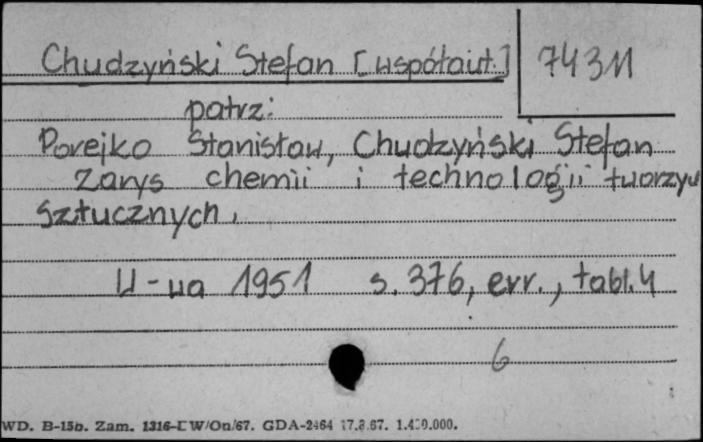 Chudzyński Stefan [współaut.] 74311
patrz:
Porejko Stanisław, Chudzyński Stefan
Zarys chemii i technologii tworzyw
sztucznych.
W-wa 1951 s. 376, err., tabl. 4
6
WD. B-15b. Zam. 1316-LW/On/67. GDA-2464 17.8.67. 1.400.000.